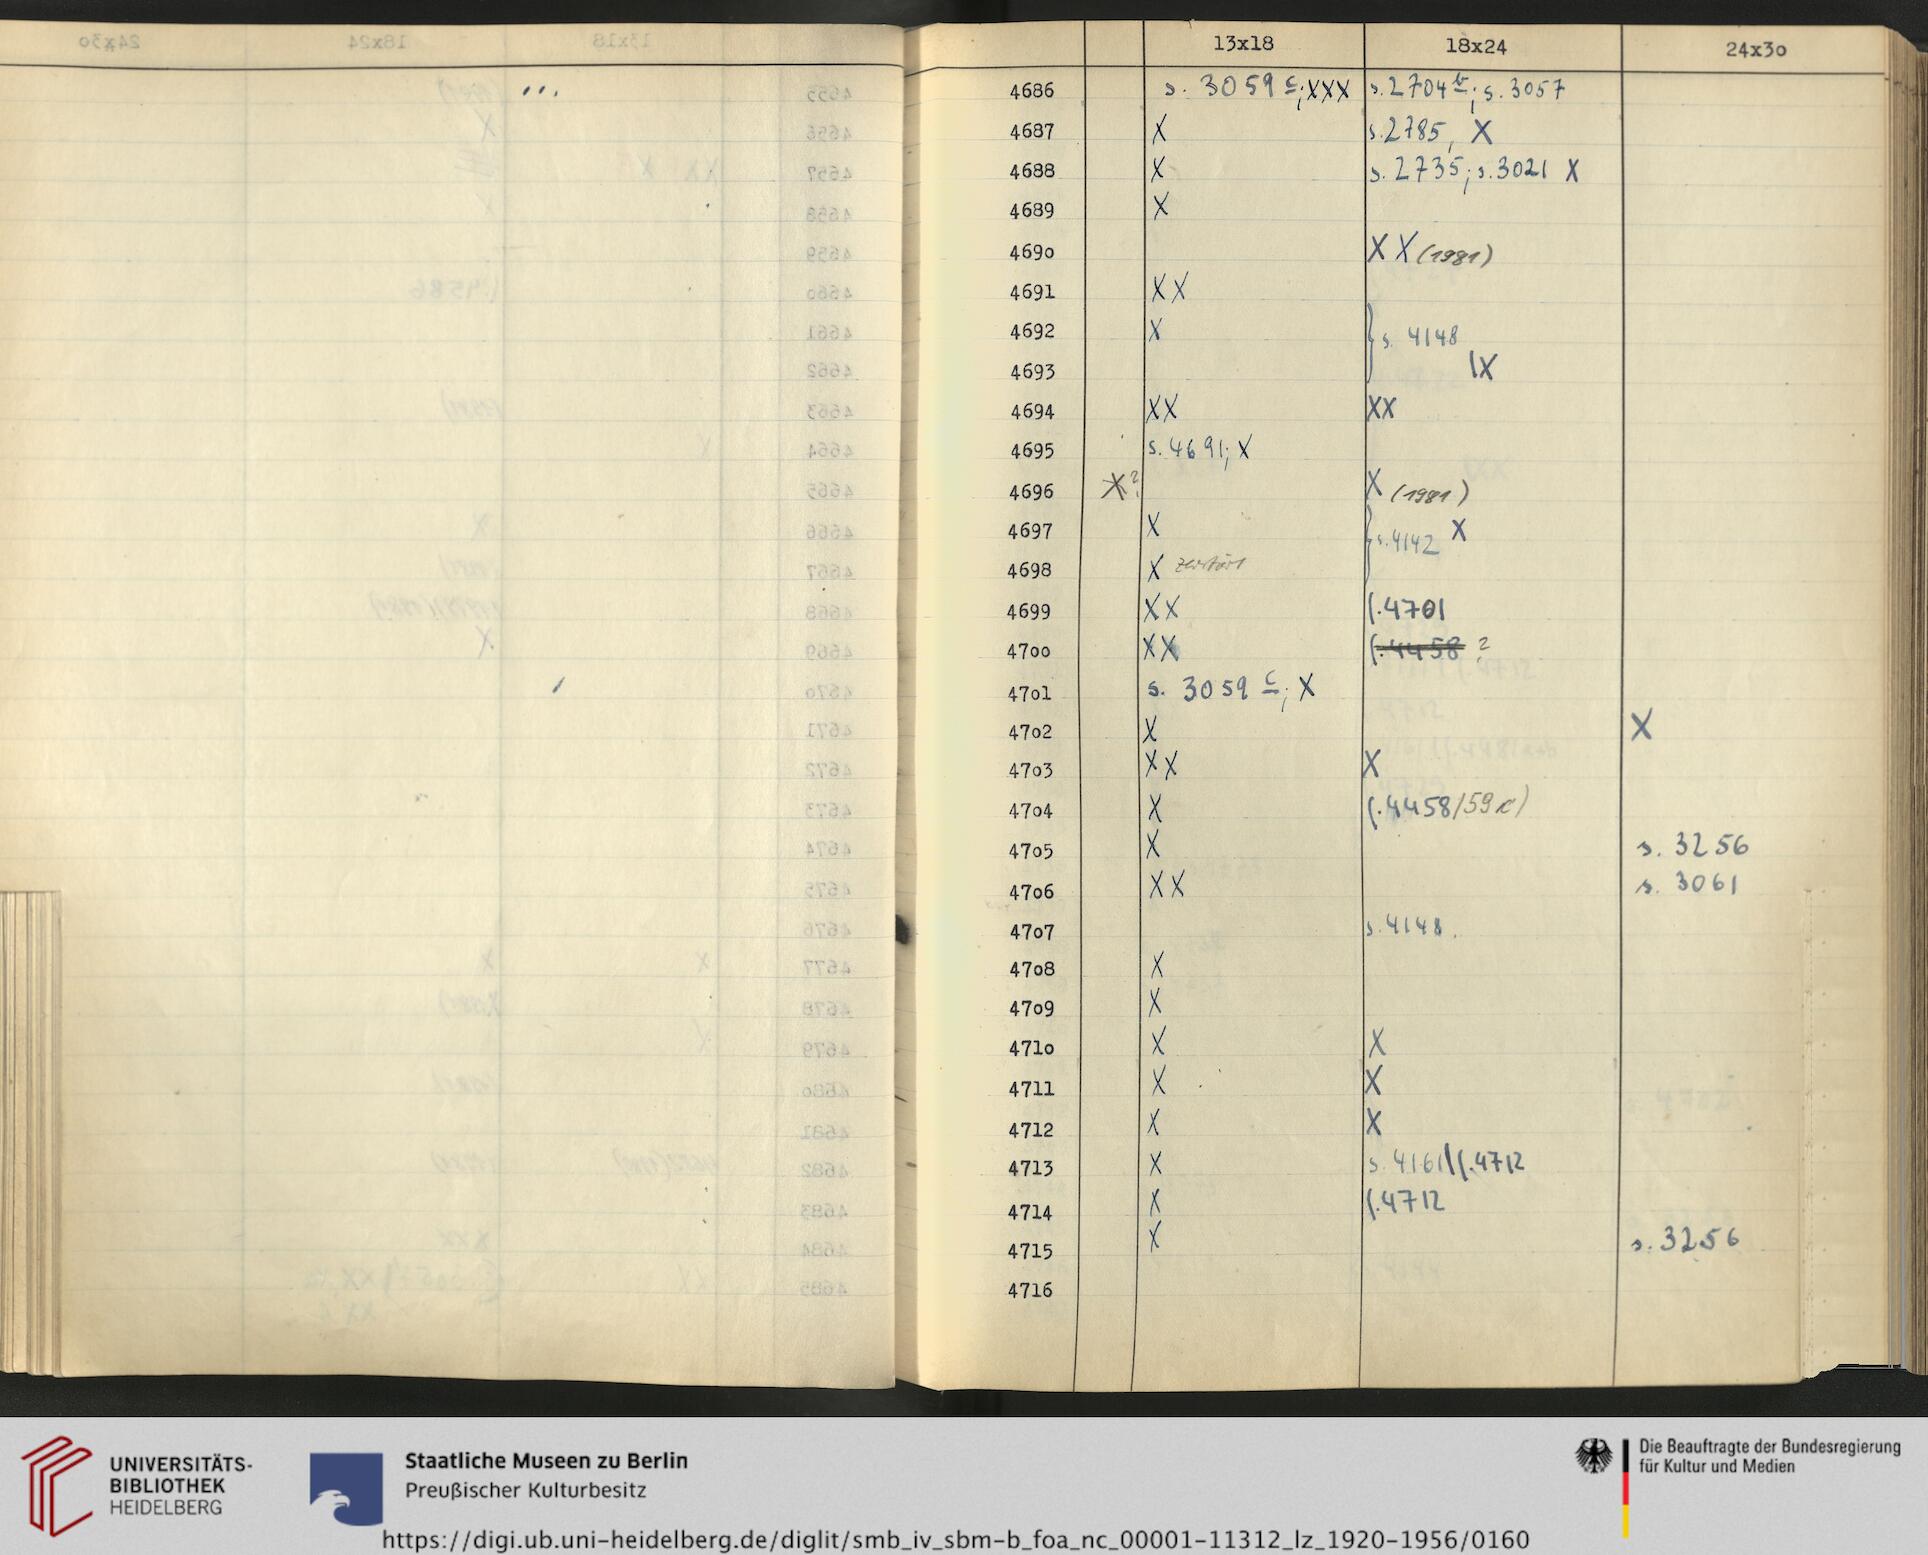 13x18 18x24 24x3o
4686 s. 3059 c; XXX s. 2704 b; s. 3057
4687 X s. 2785, X
4688 X s. 2735; s. 3021 X
4689 X
469o X X (1981)
4691 X X
4692 X } s. 4148
4693 | X
4694 X X XX
4695 s. 4691; X
4696 X? X (1981)
4697 X } s. 4142 X
4698 X zerstört
4699 X X s. 4701
47oo X X s. 4458 ?
47o1 s. 3059 c; X
47o2 X X
47o3 X X X
47o4 X s. 4458/59 c)
47o5 X s. 3256
47o6 X X s. 3061
47o7 s. 4148.
47o8 X
47o9 X
471o X X
4711 X X
4712 X X
4713 X s. 4161 | s. 4712
4714 X s. 4712
4715 X s. 3256
4716
UNIVERSITÄTS-
BIBLIOTHEK
HEIDELBERG
Staatliche Museen zu Berlin
Preußischer Kulturbesitz
Die Beauftragte der Bundesregierung
für Kultur und Medien
https://digi.ub.uni-heidelberg.de/diglit/smb_iv_sbm-b_foa_nc_00001-11312_lz_1920-1956/0160